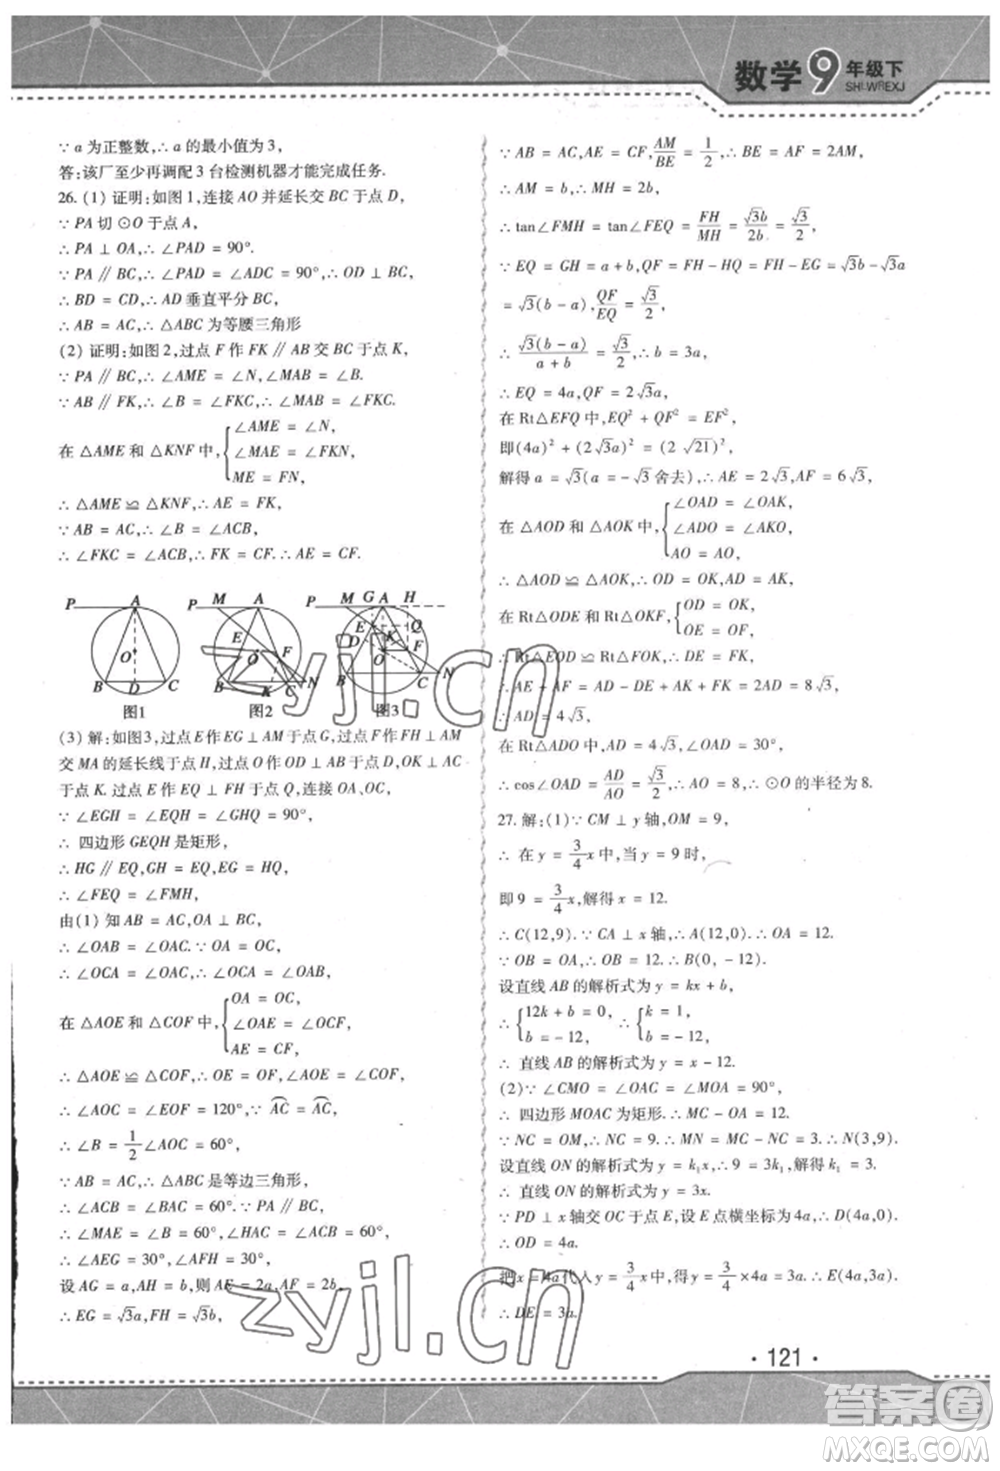 数学9年级下
SHI-WREXJ
∵ a 为正整数,∴ a 的最小值为 3,
答:该厂至少再调配 3 台检测机器才能完成任务.
26. (1) 证明:如图 1,连接 AO 并延长交 BC 于点 D,
∵ PA 切 ⊙O 于点 A,
∴ PA ⊥ OA,∴ ∠PAD = 90°.
∵ PA ∥ BC,∴ ∠PAD = ∠ADC = 90°,∴ OD ⊥ BC,
∴ BD = CD,∴ AD 垂直平分 BC,
∴ AB = AC,∴ △ABC 为等腰三角形
(2) 证明:如图 2,过点 F 作 FK ∥ AB 交 BC 于点 K,
∵ PA ∥ BC,∴ ∠AME = ∠N,∠MAB = ∠B.
∵ AB ∥ FK,∴ ∠B = ∠FKC,∴ ∠MAB = ∠FKC.
在 △AME 和 △KNF 中,{∠AME = ∠N,
∠MAE = ∠FKN,
ME = FN,
∴ △AME ≌ △KNF,∴ AE = FK,
∵ AB = AC,∴ ∠B = ∠ACB,
∴ ∠FKC = ∠ACB,∴ FK = CF.∴ AE = CF.
P A O B D C
图1
P M A E O F B K C N
图2
P M G A H E D Q K O F B C N
图3
(3) 解:如图 3,过点 E 作 EG ⊥ AM 于点 G,过点 F 作 FH ⊥ AM
交 MA 的延长线于点 H,过点 O 作 OD ⊥ AB 于点 D,OK ⊥ AC
于点 K. 过点 E 作 EQ ⊥ FH 于点 Q,连接 OA,OC,
∵ ∠EGH = ∠EQH = ∠GHQ = 90°,
∴ 四边形 GEQH 是矩形,
∴ HG ∥ EQ,EQ = GH,
∴ ∠FEQ = ∠FMH,
由(1) 知 AB = AC,OA ⊥ BC,
∴ ∠OAB = ∠OAC.∵ OA = OC,
∴ ∠OCA = ∠OAC,∴ ∠OCA = ∠OAB,
在 △AOE 和 △COF 中,{OA = OC,
∠OAE = ∠OCF,
AE = CF,
∴ △AOE ≌ △COF,∴ ∠AOE = ∠COF,
∴ ∠AOC = ∠EOF = 120°,∵ AC⌢ = AC⌢,
∴ ∠B = 1/2 ∠AOC = 60°,
∵ AB = AC,∴ △ABC 是等边三角形,
∴ ∠ACB = ∠BAC = 60°,∵ PA ∥ BC,
∴ ∠MAE = ∠B = 60°,∠HAC = ∠ACB = 60°,
∴ ∠AEG = 30°,∠AFH = 30°,
设 AG = a,AH = b,则 AE = 2a,AF = 2b,
∴ EG = √3a,FH = √3b,
∵ AB = AC,AE = CF,AM/BE = 1/2,∴ BE = AF = 2AM,
∴ AM = b,∴ MH = 2b,
∴ tan∠FMH = tan∠FEQ = FH/MH = √3b/2b = √3/2.
∵ EQ = GH = a + b,QF = FH − HQ = FH − EG = √3b − √3a
= √3(b − a),QF/EQ = √3/2,
∴ √3(b − a)/(a + b) = √3/2,∴ b = 3a,
∴ EQ = 4a,QF = 2√3a,
在 Rt△EFQ 中,EQ² + QF² = EF²,
即(4a)² + (2√3a)² = (2√21)²,
解得 a = √3(a = −√3 舍去),∴ AE = 2√3,AF = 6√3,
在 △AOD 和 △AOK 中,{∠OAD = ∠OAK,
∠ADO = ∠AKO,
AO = AO,
∴ △AOD ≌ △AOK,∴ OD = OK,AD = AK,
在 Rt△ODE 和 Rt△OKF,{OD = OK,
OE = OF,
∴ Rt△EOD ≌ Rt△FOK,∴ DE = FK,
∴ AE + AF = AD − DE + AK + FK = 2AD = 8√3,
∴ AD = 4√3,
在 Rt△ADO 中,AD = 4√3,∠OAD = 30°,
∴ cos∠OAD = AD/AO = √3/2,∴ AO = 8,∴ ⊙O 的半径为 8.
27. 解:(1)∵ CM ⊥ y 轴,OM = 9,
∴ 在 y = 3/4 x 中,当 y = 9 时,
即 9 = 3/4 x,解得 x = 12.
∴ C(12,9).∵ CA ⊥ x 轴,∴ A(12,0).∴ OA = 12.
∵ OB = OA,∴ OB = 12.∴ B(0, − 12)
设直线 AB 的解析式为 y = kx + b,
∴ {12k + b = 0, b = − 12, ∴ {k = 1, b = − 12,
∴ 直线 AB 的解析式为 y = x − 12.
(2)∵ ∠CMO = ∠OAC = ∠MOA = 90°,
∴ 四边形 MOAC 为矩形.∴ MC = OA = 12.
∵ NC = OM,∴ NC = 9.∴ MN = MC − NC = 3.∴ N(3,9).
设直线 ON 的解析式为 y = k₁x,∴ 9 = 3k₁,解得 k₁ = 3.
∴ 直线 ON 的解析式为 y = 3x.
∵ PD ⊥ x 轴交 OC 于点 E,设 E 点横坐标为 4a,∴ D(4a,0).
∴ OD = 4a.
把 x = 4a 代入 y = 3/4 x 中,得 y = 3/4 × 4a = 3a.∴ E(4a,3a).
∴ DE = 3a.
· 121 ·
zyjl.cn
zyjl.cn
答案圈
MXQE.COM